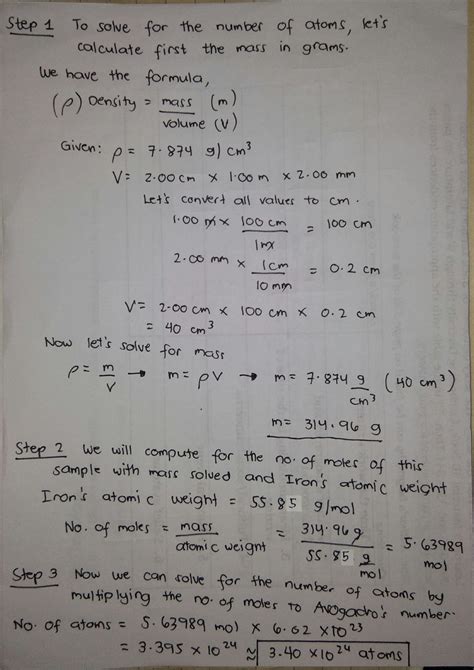 Step 1 To solve for the number of atoms, let's
calculate first the mass in grams.
We have the formula,
(ρ) Density = mass (m)
volume (V)
Given: ρ = 7.874 g/cm³
V = 2.00 cm × 1.00 m × 2.00 mm
Let's convert all values to cm.
1.00 m × 100 cm = 100 cm
1 m
2.00 mm × 1 cm = 0.2 cm
10 mm
V = 2.00 cm × 100 cm × 0.2 cm
= 40 cm³
Now let's solve for mass
ρ = m/V → m = ρV → m = 7.874 g/cm³ (40 cm³)
m = 314.96 g
Step 2 We will compute for the no. of moles of this
sample with mass solved and Iron's atomic weight
Iron's atomic weight = 55.85 g/mol
No. of moles = mass = 314.96 g = 5.63989
atomic weight 55.85 g/mol mol
Step 3 Now we can solve for the number of atoms by
multiplying the no. of moles to Avogadro's number.
No. of atoms = 5.63989 mol × 6.02 × 10²³
= 3.395 × 10²⁴ ≈ 3.40 × 10²⁴ atoms